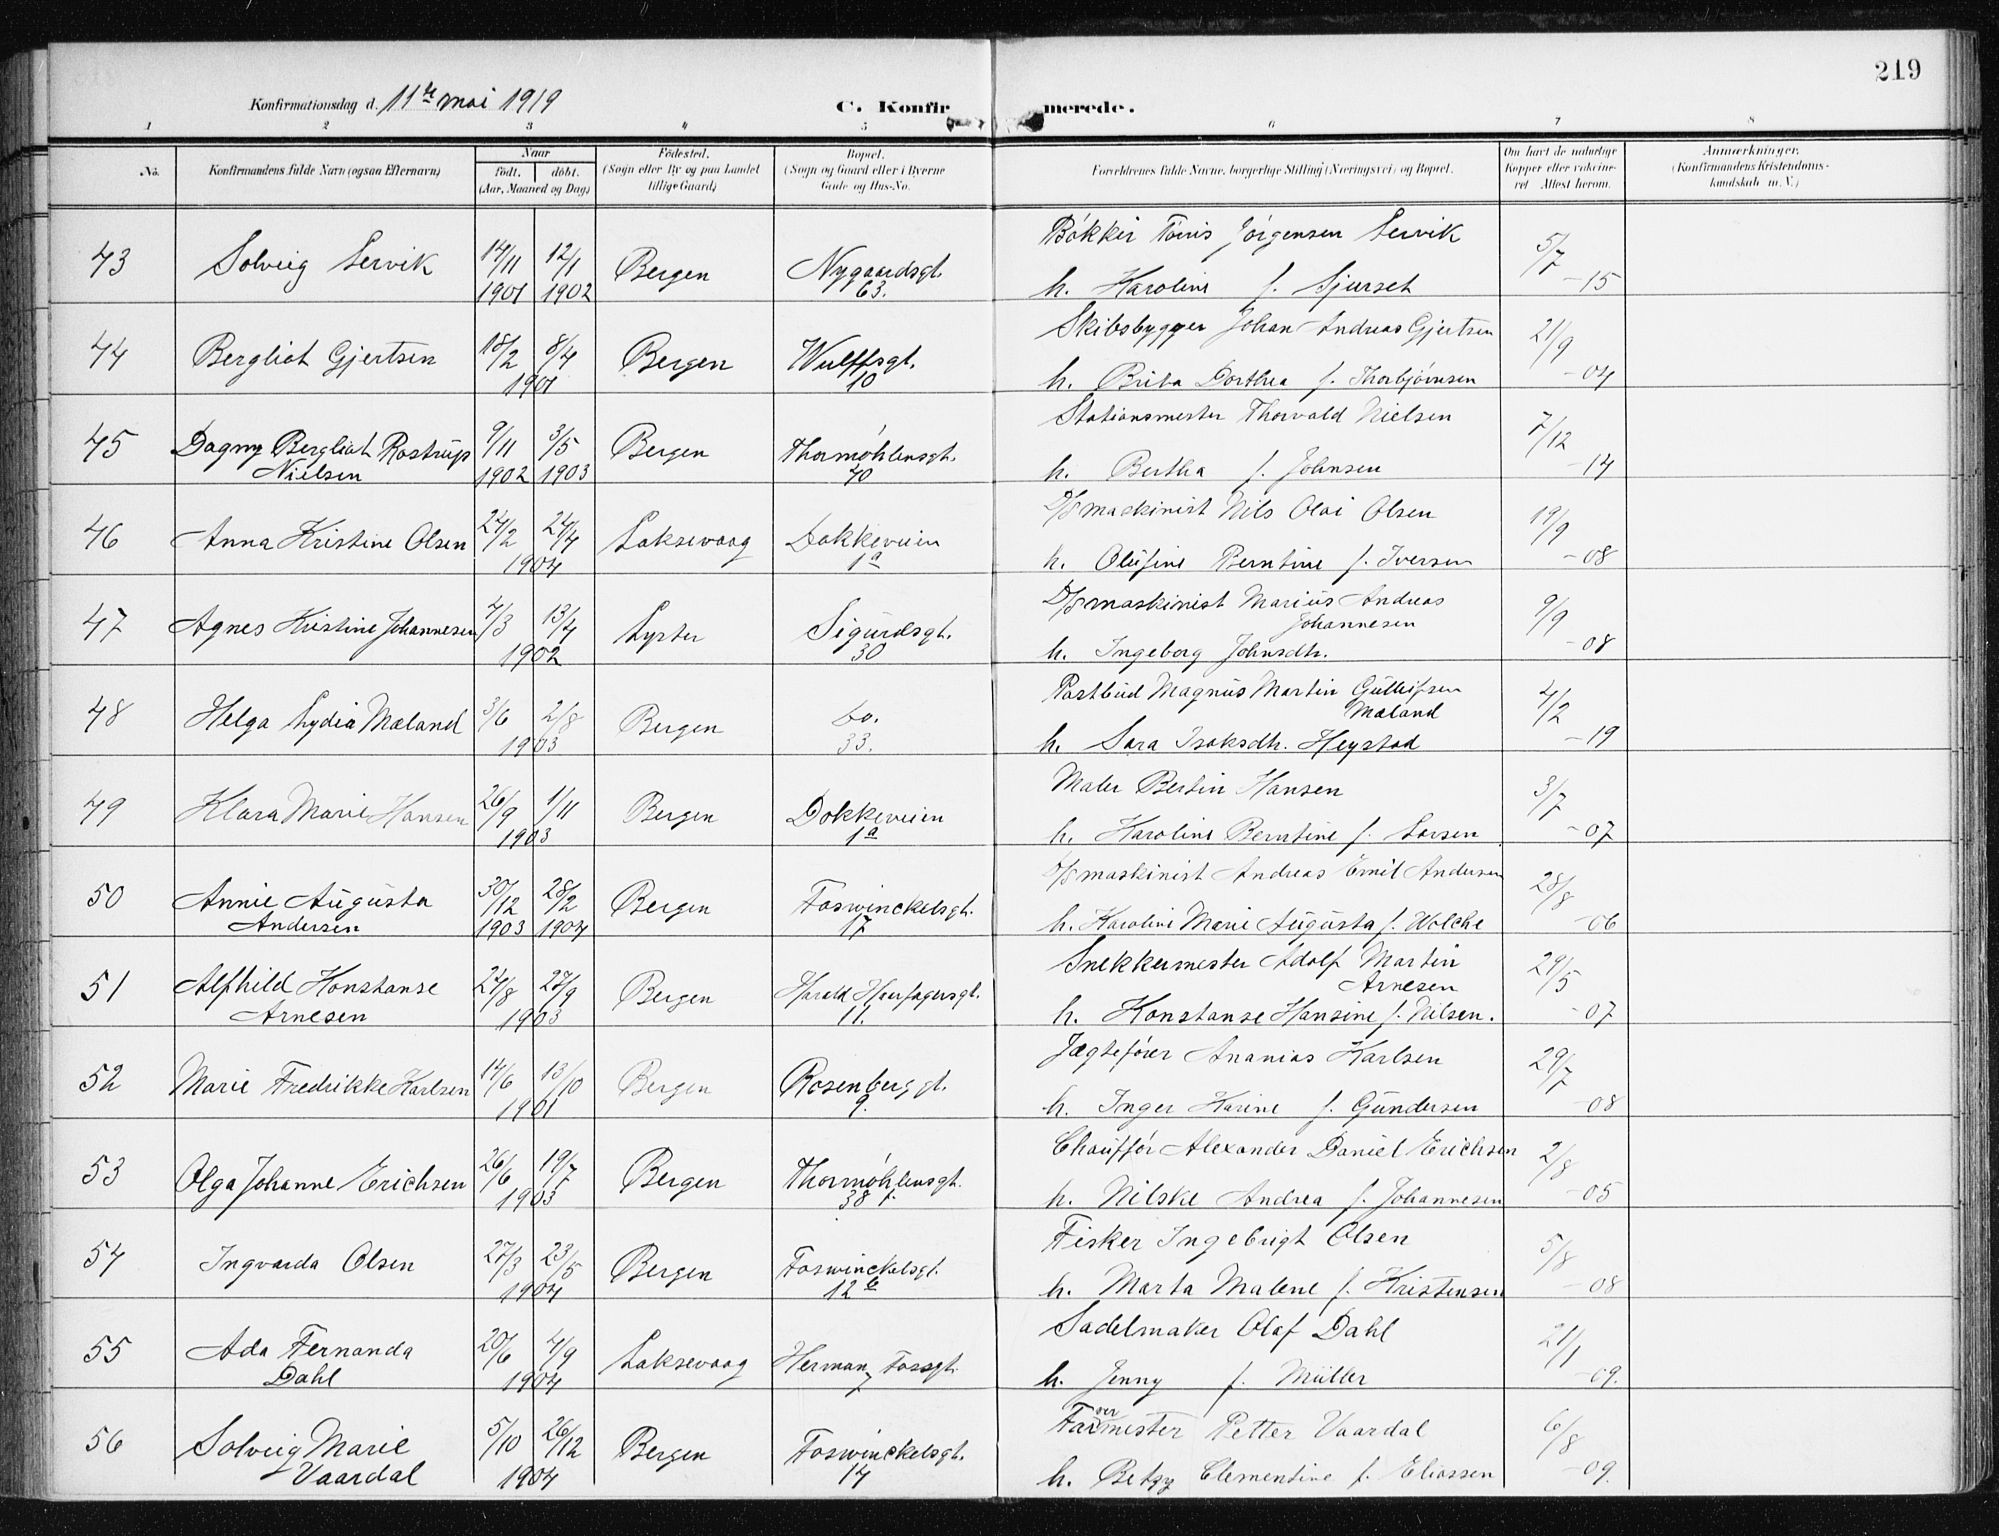 219
Konfirmationsdag d. 11te mai 1919 C. Konfirmerede.
1 2 3 4 5 6 7 8
No. Konfirmandens fulde Navn (ogsaa Efternavn) Naar født. døbt. (Aar, Maaned og Dag) Fødested. (Sogn eller By og paa Landet tillige Gaard) Bopæl. (Sogn og Gaard eller i Byerne Gade og Hus-No. Forældrenes fulde Navne, borgerlige Stilling (Næringsvei) og Bopæl. Om havt de naturlige Kopper eller vakcineret. Attest herom. Anmærkninger. (Konfirmandens Kristendomskundskab m. V.)
43 Solveig Servik 14/11 1901 12/1 1902 Bergen Nygaardsgt. 63. Bøkker Tønis Jörgensen Servik 5/7 -15
h. Karoline f. Sjurset
44 Bergliot Gjertsen 18/2 8/4 1901 Bergen Wulffsgt. 10 Skibsbygger Johan Andreas Gjertsen 21/9 -04
h. Brita Dorthea f. Thorbjørnsen
45 Dagny Bergliot Rostrup Nielsen 9/11 1902 3/5 1903 Bergen Thormøhlensgt. 40 Stationsmester Thorvald Nielsen 7/12 -14
h. Bertha f. Johnsen
46 Anna Kristine Olsen 24/2 24/4 1904 Laksevaag Dokkeveien 1a D/S maskinist Nils Olai Olsen 19/9 -08
h. Olufine Berntine f. Iversen
47 Agnes Kristine Johannesen 4/3 13/4 1902 Lyster Sigurdsgt. 30 D/S maskinist Marius Andreas Johannesen 9/9 -08
h. Ingeborg Johnsdtr.
48 Helga Lydia Mæland 3/6 2/8 1903 Bergen do. 33. Postbud Magnus Martin Gulleifsen Mæland 4/2 -19
h. Sara Isaksdtr. Heystad
49 Klara Marie Hansen 26/9 1/11 1903 Bergen Dokkeveien 1a Maler Bertin Hansen 3/7 -07
h. Karoline Berntine f. Larsen
50 Annie Augusta Andersen 30/12 1903 28/2 1904 Bergen Foswinckelsgt. 17 D/S maskinist Andreas Emil Andersen 28/8 -06
h. Karoline Marie Augusta f. Wolche
51 Alfhild Konstanse Arnesen 24/8 27/9 1903 Bergen Harald Haarfagersgt. 11. Snekkermester Adolf Martin Arnesen 29/5 -07
h. Konstanse Hansine f. Nilsen.
52 Marie Fredrikke Karlsen 14/6 13/10 1901 Bergen Rosenberggt. 9. Jægtefører Ananias Karlsen 29/7 -08
h. Inger Karine f. Gundersen
53 Olga Johanne Erichsen 26/6 19/7 1903 Bergen Thormøhlensgt. 38 Chauffør Alexander Daniel Erichsen 2/8 -05
h. Nilske Andrea f. Johannesen
54 Ingvarda Olsen 27/3 23/5 1904 Bergen Foswinckelsgt. 12 b Fisker Ingebrigt Olsen 5/8 -08
h. Marta Malene f. Kristensen
55 Ada Fernanda Dahl 20/6 4/9 1904 Laksevaag Herman Fossgt. 7 Sadelmaker Olaf Dahl 21/1 -09.
h. Jenny f. Müller
56 Solveig Marie Vaardal 5/10 26/12 1904 Bergen Foswinckelsgt. 14 Farvermester Petter Vaardal 6/8 -09.
h. Betzy Clementine f. Eliassen